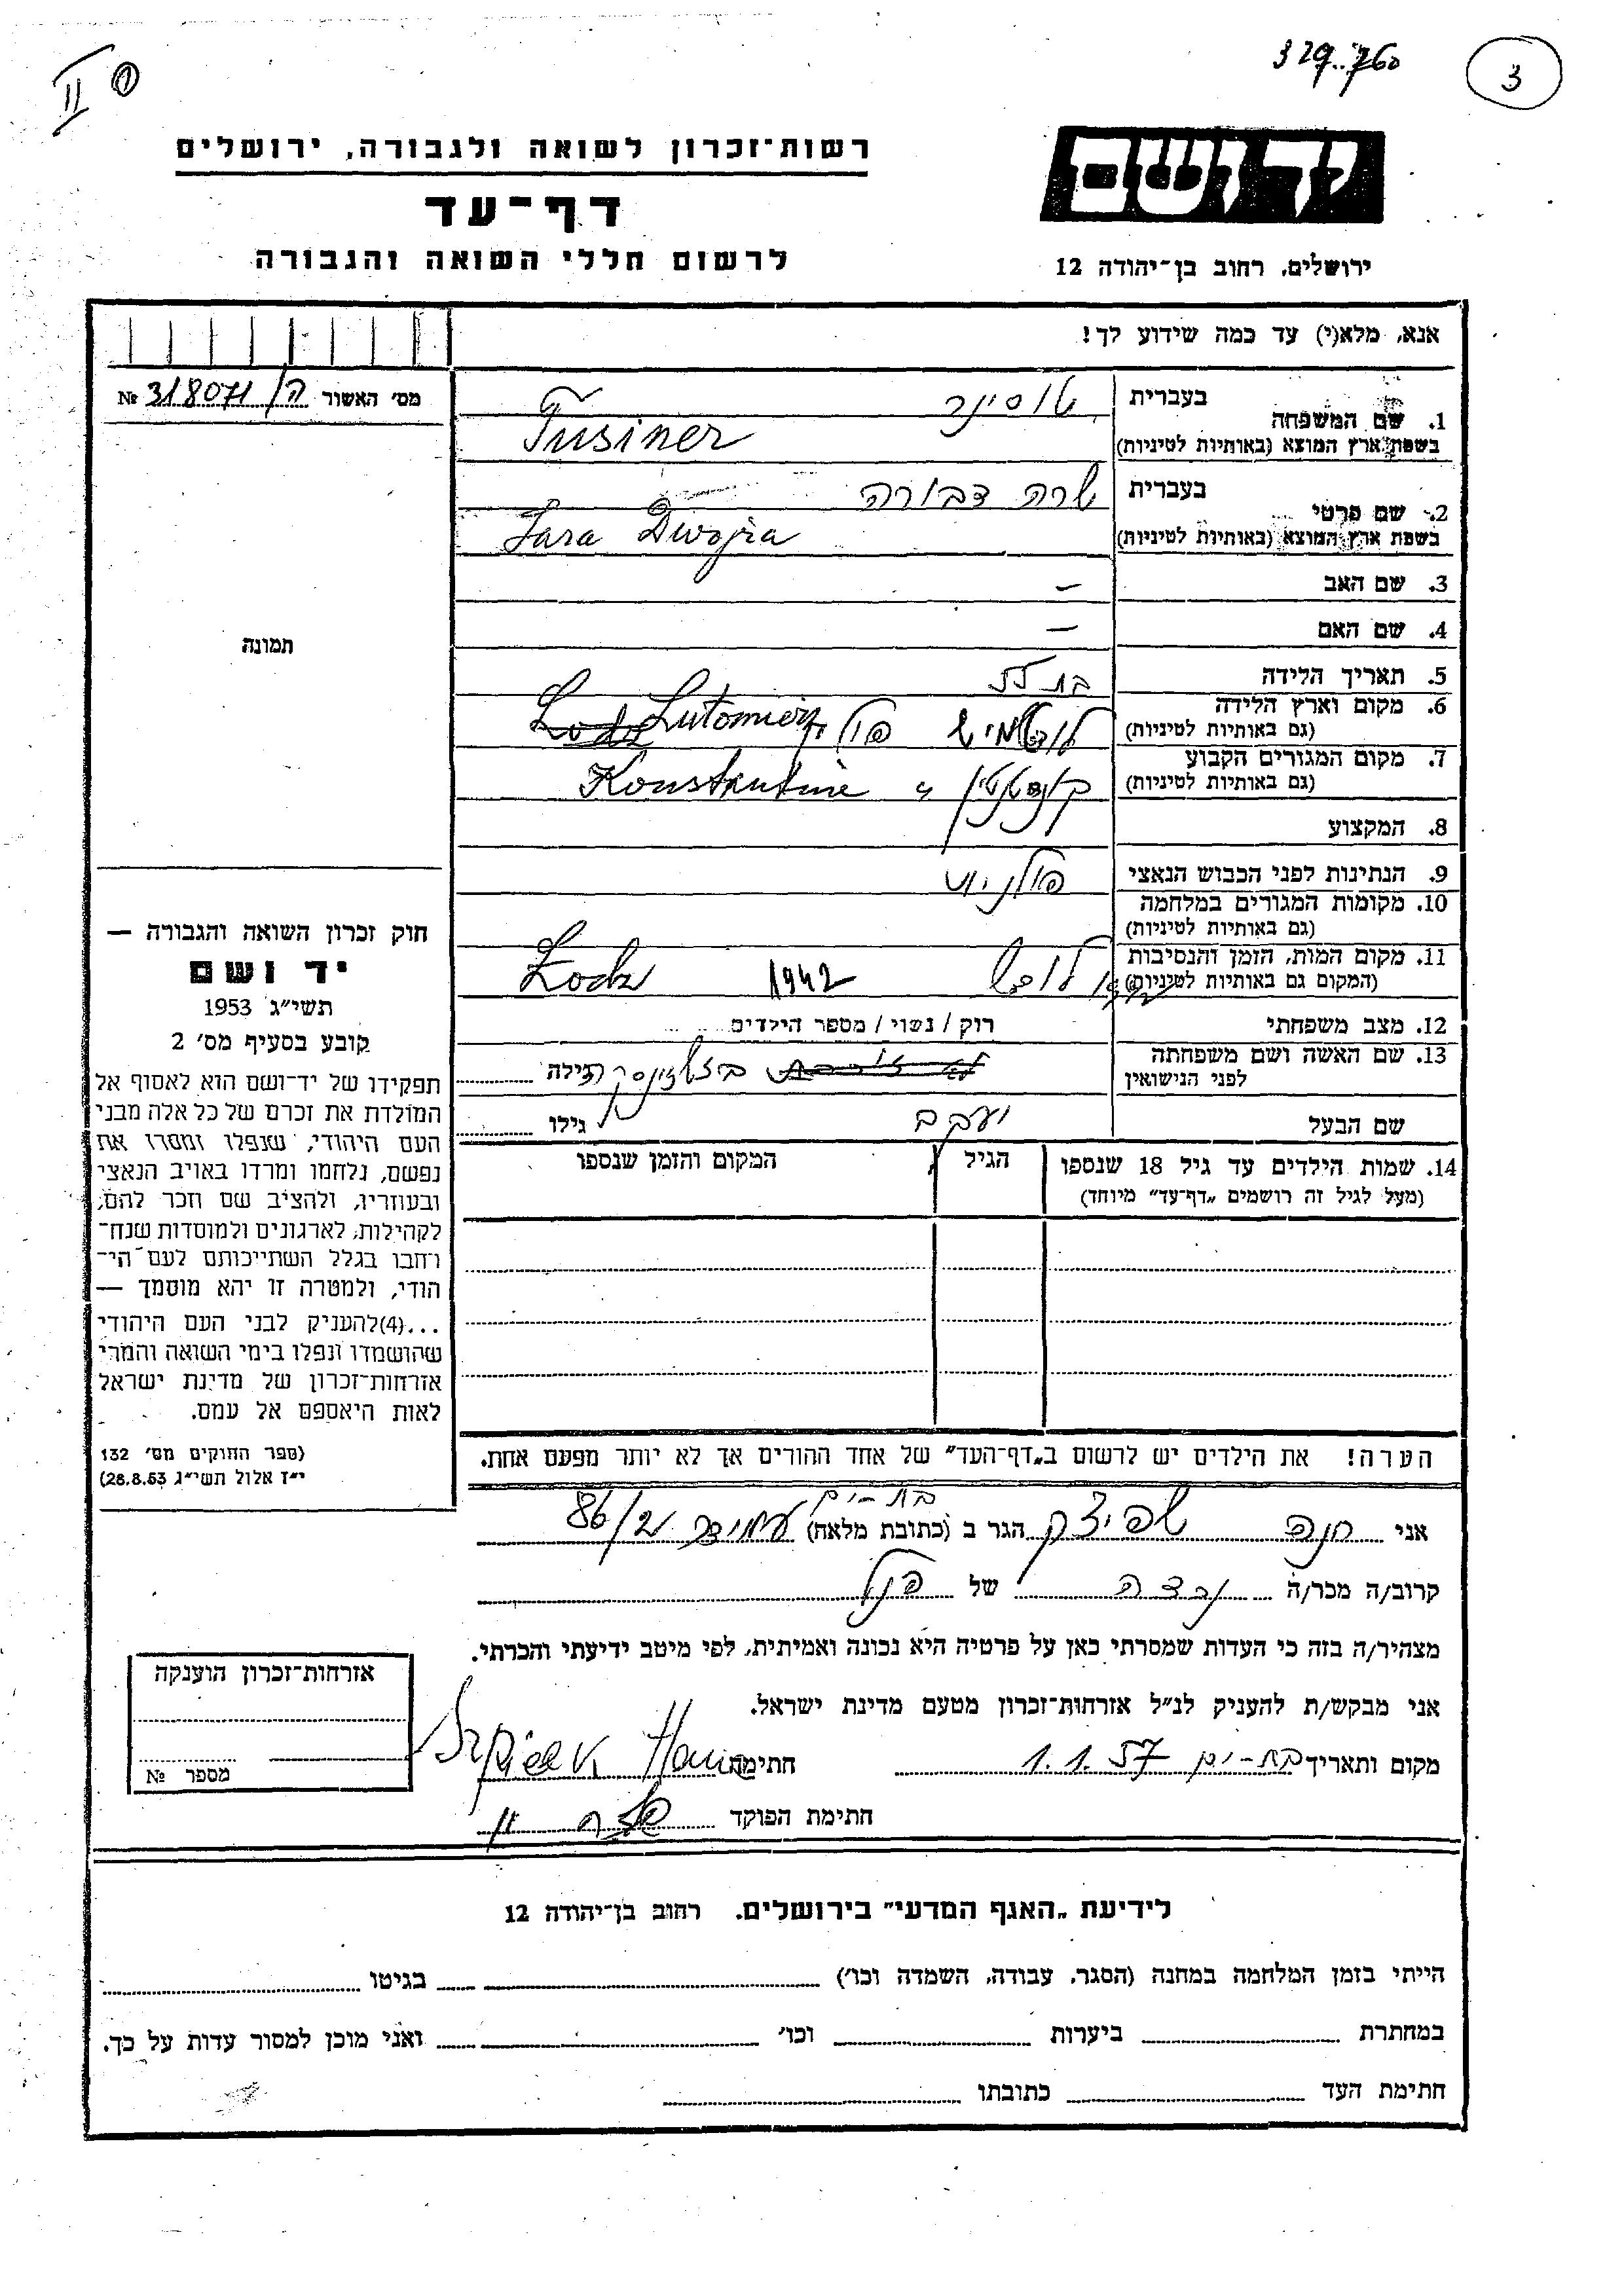 II 1
329.760
3
רשות־זכרון לשואה ולגבורה, ירושלים
דף־עד
לרשום חללי השואה והגבורה
יד ושם
ירושלים, רחוב בן־יהודה 12
אנא, מלא(י) עד כמה שידוע לך!
מס׳ האשור ה/318071 №
תמונה
1. שם המשפחה בעברית טוסינר
בשפת ארץ המוצא (באותיות לטיניות) Tusiner
2. שם פרטי בעברית שרה דבורה
בשפת ארץ המוצא (באותיות לטיניות) Sara Dwojra
3. שם האב —
4. שם האם —
5. תאריך הלידה בת
6. מקום וארץ הלידה
(גם באותיות לטיניות) פולין Lodz
7. מקום המגורים הקבוע
(גם באותיות לטיניות)
8. המקצוע
9. הנתינות לפני הכבוש הנאצי
10. מקומות המגורים במלחמה
(גם באותיות לטיניות)
11. מקום המות, הזמן והנסיבות
(המקום גם באותיות לטיניות) 1942 Lodz
12. מצב משפחתי רוק / נשוי / מספר הילדים
13. שם האשה ושם משפחתה
לפני הנישואין גילה
שם הבעל יעקב גילו
14. שמות הילדים עד גיל 18 שנספו הגיל המקום והזמן שנספו
(מעל לגיל זה רושמים „דף־עד״ מיוחד)
הערה! את הילדים יש לרשום ב„דף־העד״ של אחד ההורים אך לא יותר מפעם אחת.
חוק זכרון השואה והגבורה —
יד ושם
תשי״ג 1953
קובע בסעיף מס׳ 2
תפקידו של יד־ושם הוא לאסוף אל
המולדת את זכרם של כל אלה מבני
העם היהודי, שנפלו ומסרו את
נפשם, נלחמו ומרדו באויב הנאצי
ובעוזריו, ולהציב שם וזכר להם,
לקהילות, לארגונים ולמוסדות שנח־
רחבו בגלל השתייכותם לעם הי־
הודי, ולמטרה זו יהא מוסמך —
...(4)להעניק לבני העם היהודי
שהושמדו ונפלו בימי השואה והמרי
אזרחות־זכרון של מדינת ישראל
לאות היאספם אל עמם.
(ספר החוקים מס׳ 132
י״ז אלול תשי״ג 28.8.53)
בת־ים
אני חנה שפיצק הגר ב (כתובת מלאה) עמידר 86/2
קרוב/ה מכר/ה נכדה של הנ״ל
מצהיר/ה בזה כי העדות שמסרתי כאן על פרטיה היא נכונה ואמיתית, לפי מיטב ידיעתי והכרתי.
אני מבקש/ת להעניק לנ״ל אזרחות־זכרון מטעם מדינת ישראל.
מקום ותאריך בת־ים 1.1.57 חתימה
חתימת הפוקד
אזרחות־זכרון הוענקה
מספר №
לידיעת „האגף המדעי״ בירושלים. רחוב בן־יהודה 12
הייתי בזמן המלחמה במחנה (הסגר, עבודה, השמדה וכו׳) בגיטו
במחתרת ביערות וכו׳ ואני מוכן למסור עדות על כך.
חתימת העד כתובתו